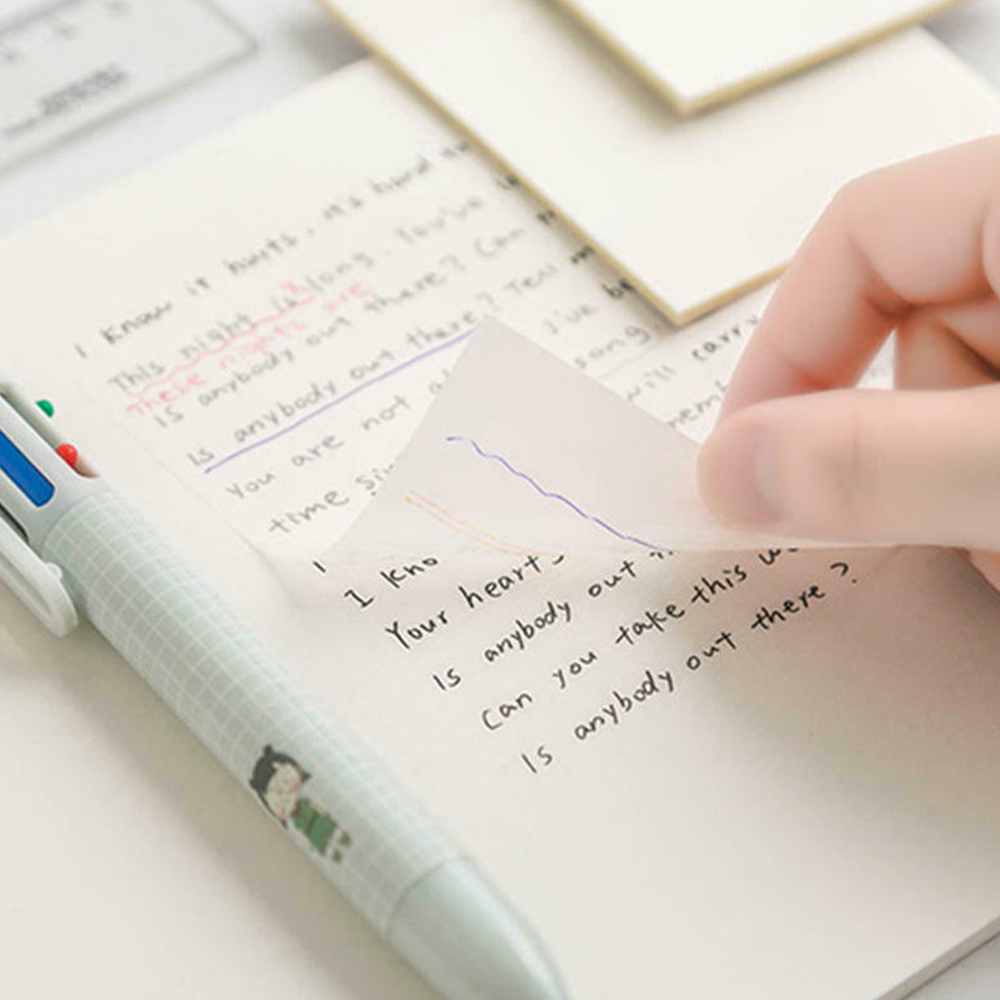 I know it hurts, it's hard
This night is long. You've
These nights are
Is anybody out there? Can
Is anybody out there? Tell
You are not I've be
time song
will carry
I kno
Your heart's
Is anybody out
Can you take this
Is anybody out there?